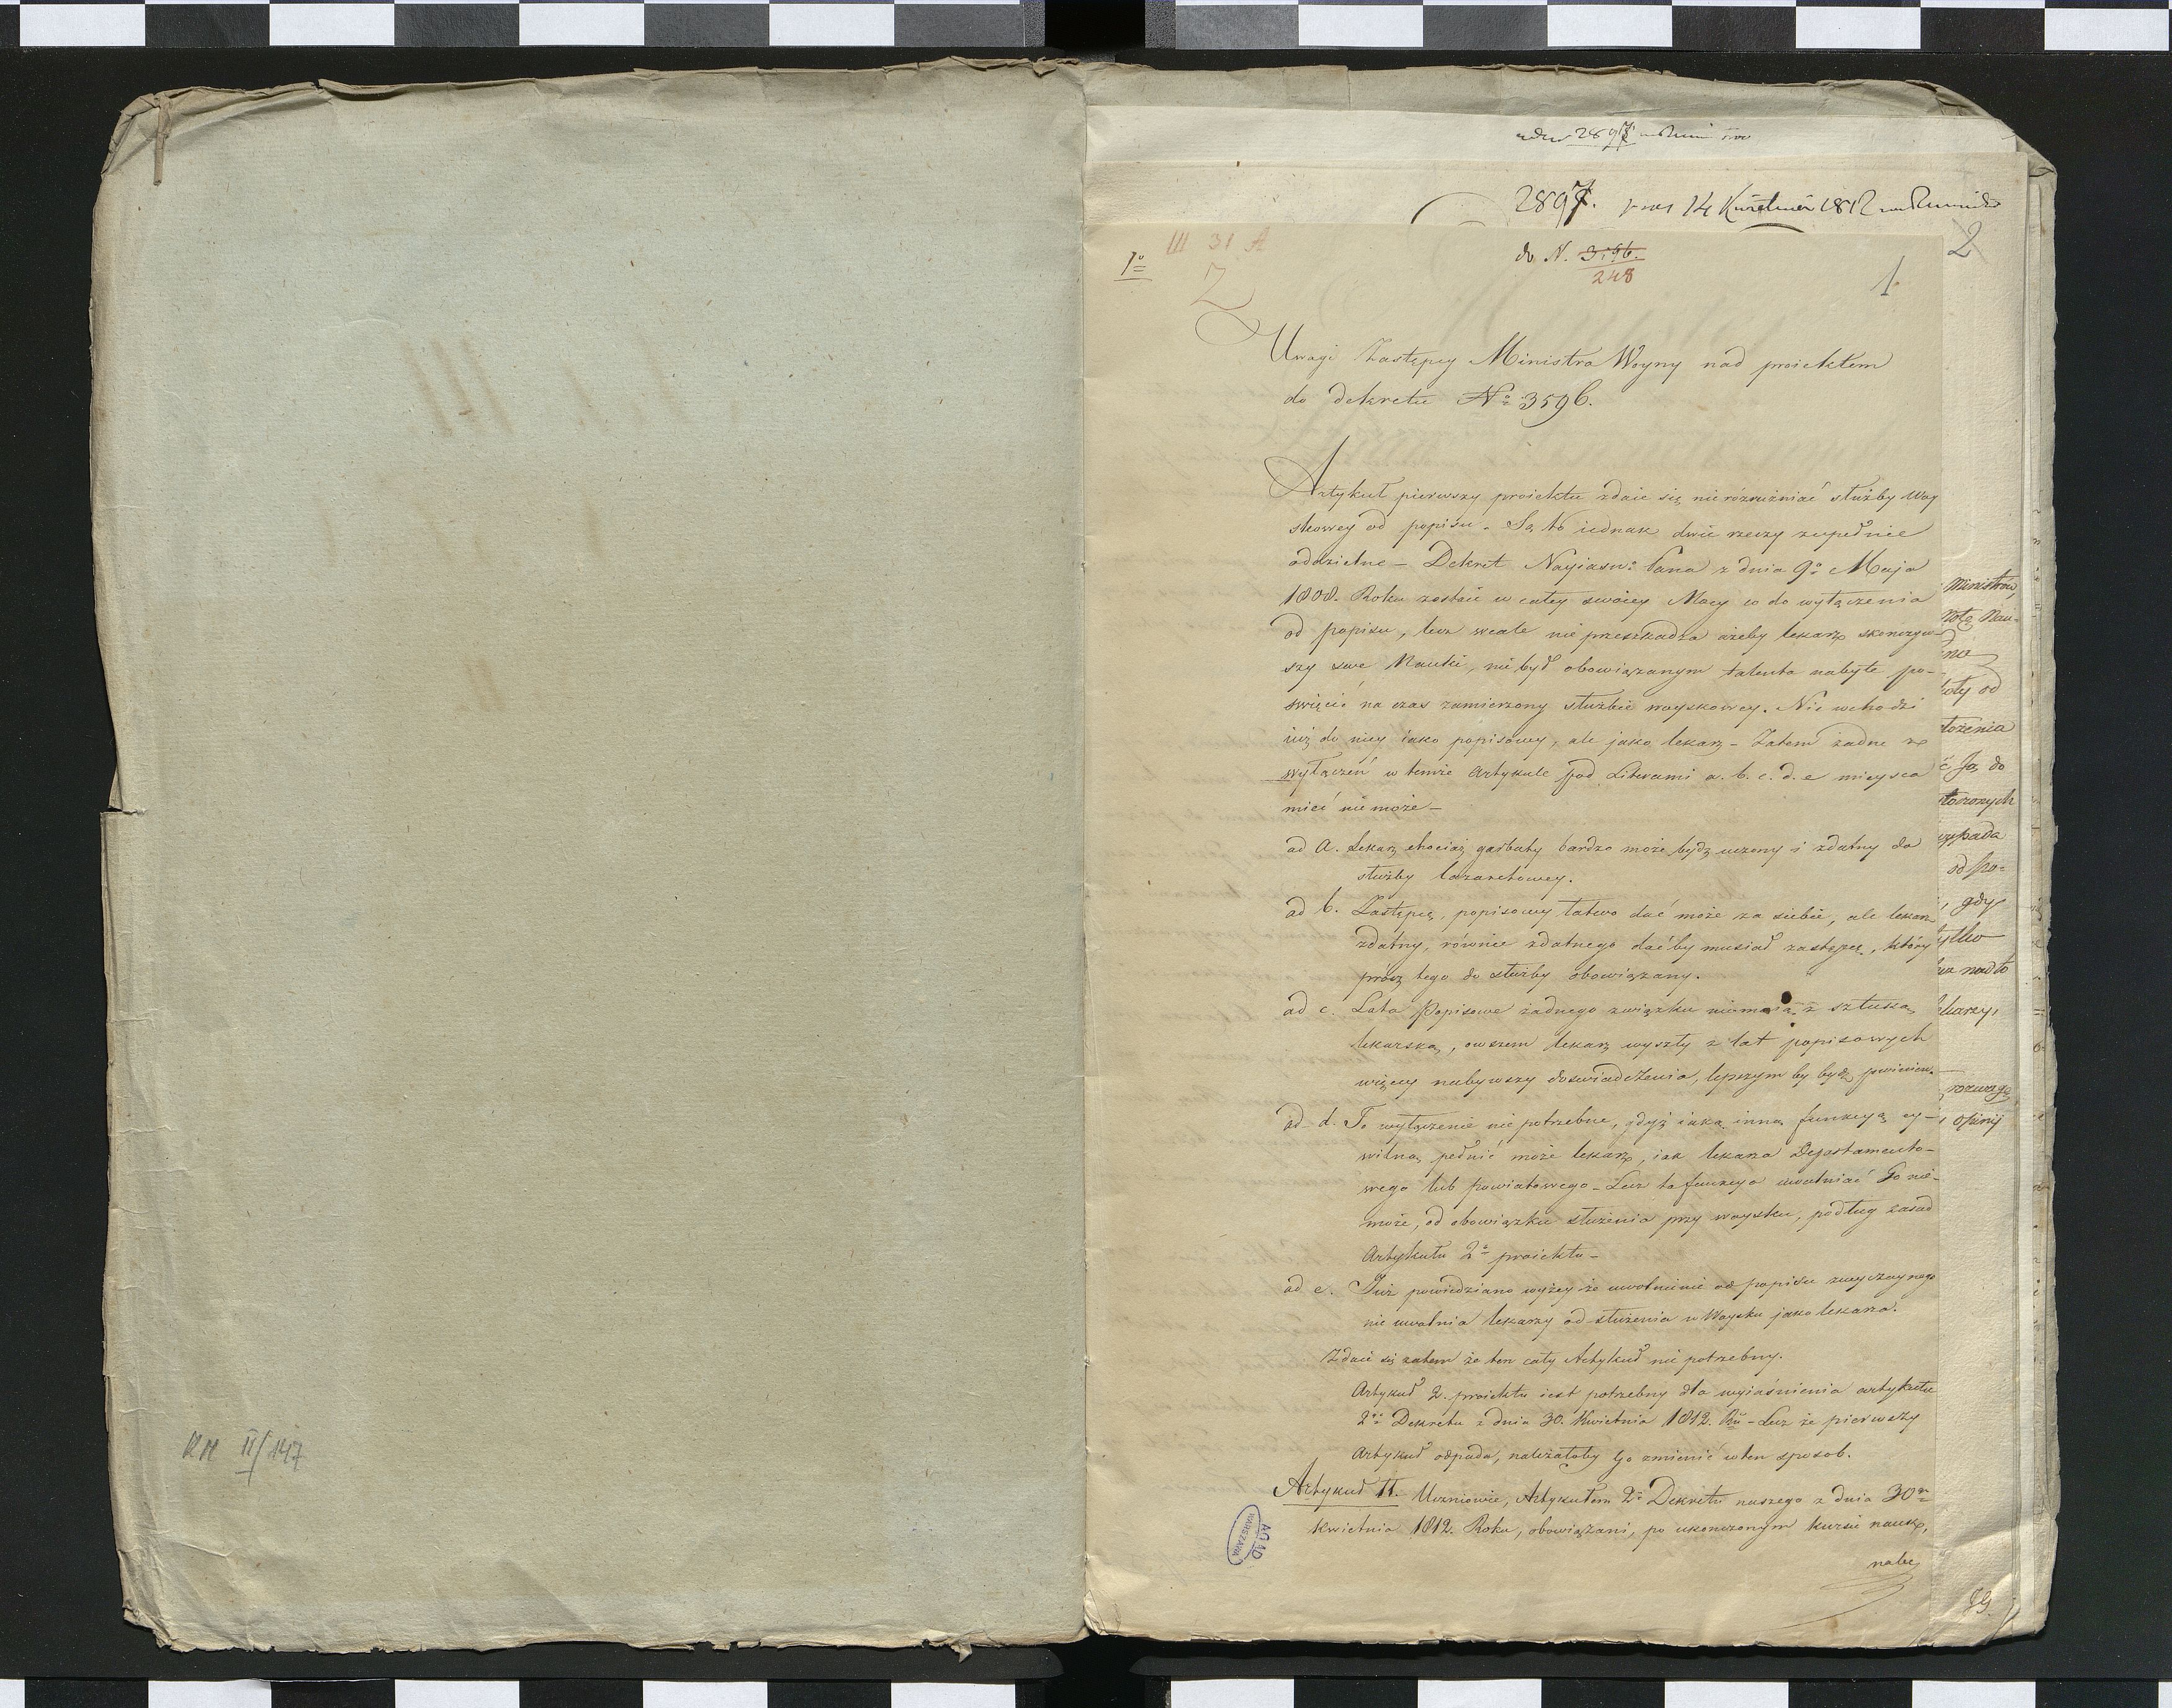 2897. 14 Kwietnia 1812
2
III 31 A
1º
do N. 3596.
248
1.
Uwagi Zastępcy Ministra Woyny nad proiektem
do dekretu Nº 3596.
Artykuł pierwszy proiektu zdaie się nierózrużniać służby Woy
skowey od popisu. Są to iednak dwie rzeczy zupełnie
oddzielne – Dekret Nayiasn: Pana z dnia 9º Maja
1808. Roku zostaie w całey swoiey Mocy co do wyłączenia
od popisu, lecz wcale nieprzeszkadza ażeby lekarz skonczyw
szy swe Nauki, nie był obowiązanym talenta nabyte po-
swięcić na czas zamierzony służbie woyskowey. Nie wchodzi
iuż do niey iako popisowy, ale jako lekarz – Zatem żadne z
wyłączeń w temże Artykule pod Literami a. b. c. d. e mieysca
mieć nie może –
ad a. Lekarz chociaż garbaty bardzo może bydź uczony i zdatny do
służby lazaretowey.
ad b. Zastępcę, popisowy łatwo dać może za siebie, ale lekarz
zdatny, równie zdatnego dać by musiał zastępcę, który
prócz tego do służby obowiązany.
ad c. Lata Popisowe żadnego związku niemaią z sztuką
lekarską, owszem lekarz wyszły z lat popisowych
więcey nabywszy doswiadczenia, lepszym by bydź powinien.
ad d. To wyłączenie nie potrzebne, gdyż iaką inną funkcyą cy-
wilną pełnić może lekarz, iak lekarza Departamento-
wego lub powiatowego – Lecz ta funkcya uwalniać Go nie-
może, od obowiązku służenia przy woysku, podług zasad
Artykułu 2º proiektu –
ad e. Już powiedziano wyżey że uwolnienie od popisu zwyczaynego
nie uwalnia lekarzy od służenia w Woysku jako lekarza.
Zdaie się zatem że ten cały Artykuł nie potrzebny.
Artykuł 2. proiektu iest potrzebny dla wyiaśnienia artykułu
2go Dekretu z dnia 30. Kwietnia 1812. Ru – Lecz że pierwszy
Artykuł odpada, należałoby Go zmienić w ten sposob.
Artykuł II. Uczniowie, Artykułem 2º Dekretu naszego z dnia 30go
Kwietnia 1812. Roku, obowiązani, po ukonczonym kursie nauk,
nabę
Ministrów,
Notę
no
od
łożenia
Ją do
łoczonych
wypada
od po=
gdy
tylko
nadto
lekarzy,
rozwagę
opinij
KM II/147
AGAD
WARSZAWA